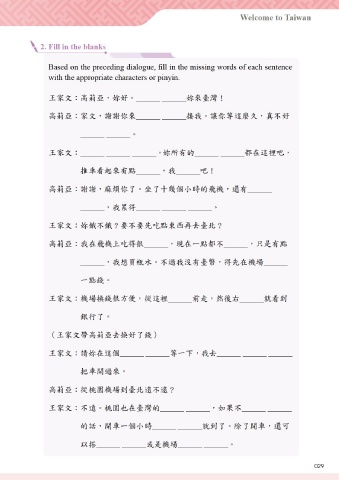 Welcome to Taiwan
2. Fill in the blanks
Based on the preceding dialogue, fill in the missing words of each sentence
with the appropriate characters or pinyin.
王家文：高莉亞，妳好。______ ______妳來臺灣！
高莉亞：家文，謝謝你來______ ______接我。讓你等這麼久，真不好
______ ______。
王家文：______ ______ ______。妳所有的______ ______都在這裡吧。
推車看起來有點______，我______吧！
高莉亞：謝謝，麻煩你了。坐了十幾個小時的飛機，還有______
______，我累得______ ______ ______。
王家文：妳餓不餓？要不要先吃點東西再去臺北？
高莉亞：我在飛機上吃得很______，現在一點都不______，只是有點
______，我想買瓶水。不過我沒有臺幣，得先在機場______
一點錢。
王家文：機場換錢很方便。從這裡______前走，然後右______就看到
銀行了。
（王家文帶高莉亞去換好了錢）
王家文：請妳在這個______ ______等一下，我去______ ______ ______
把車開過來。
高莉亞：從桃園機場到臺北遠不遠？
王家文：不遠。桃園也在臺灣的______ ______，如果不______ ______
的話，開車一個小時______ ______就到了。除了開車，還可
以搭______ ______或是機場______ ______。
029